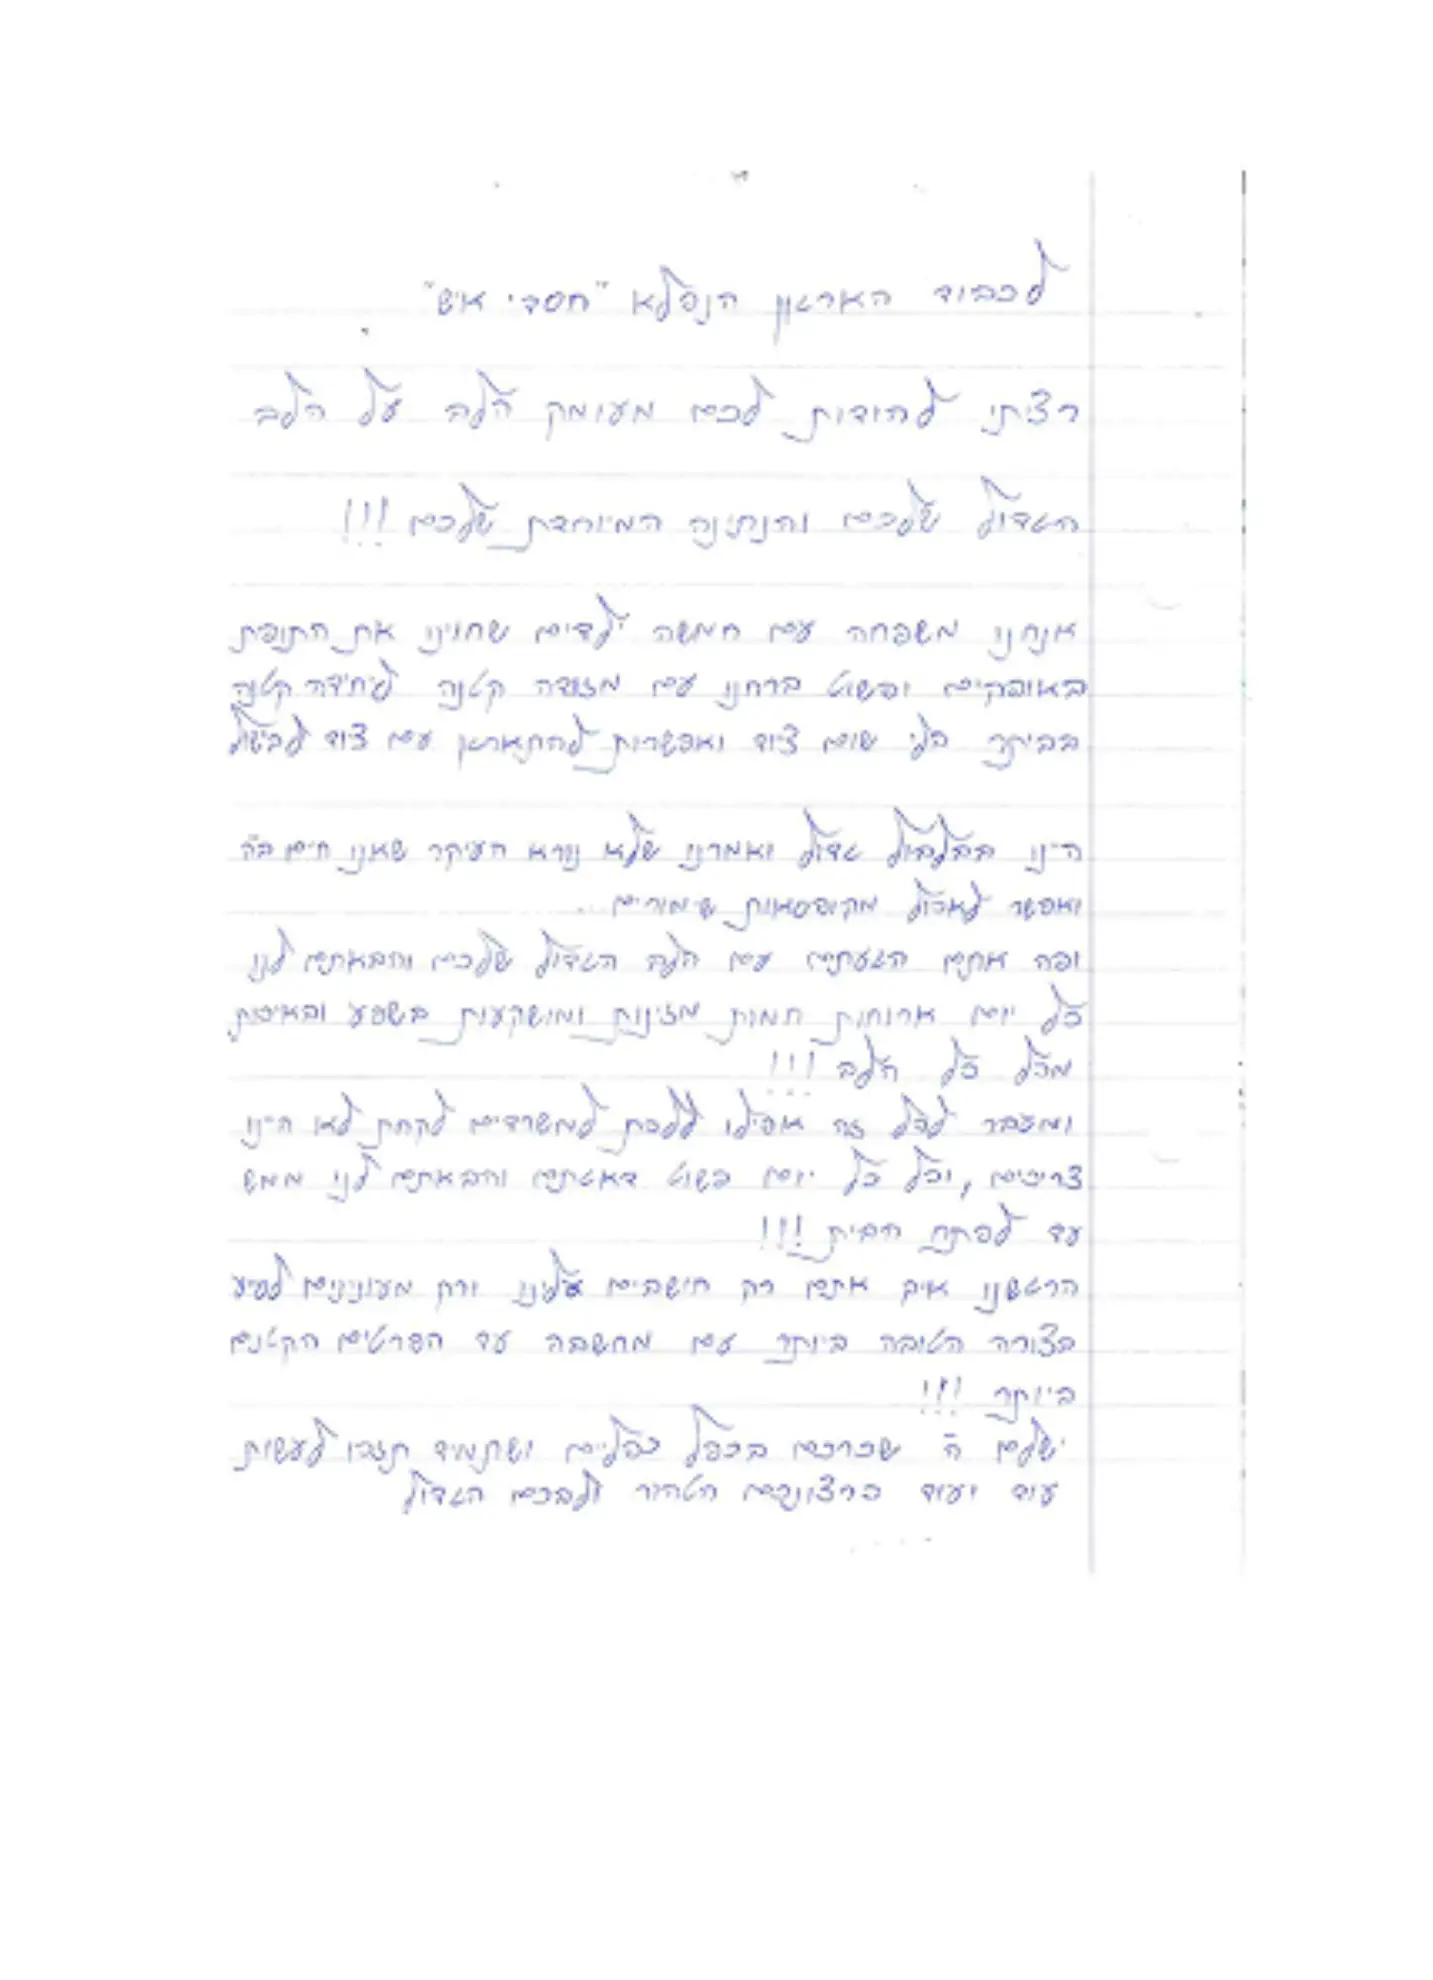 לכבוד הארגון הנפלא "חסדי איש"
רציתי להודות לכם מעומק הלב על הלב
הגדול שלכם והנתינה המיוחדת שלכם!!!
אנחנו משפחה עם חמשה ילדים שחוינו את התופת
באופקים ופשוט ברחנו עם מזודה קטנה ליחידה קטנה
בביתר בלי שום ציוד ואפשרות להתארגן עם ציוד לבישול
היינו בבלבול גדול ואמרנו שלא נורא העיקר שאנו חיים ב"ה
ואפשר לאכול מקופסאות שימורים...
ופה אתם הגעתם עם הלב הגדול שלכם והבאתם לנו
כל יום ארוחות חמות מזינות ומושקעות בשפע ובאיכות
מכל כל הלב!!!
ומעבר לכל זה אפילו ללכת למשרדים לקחת לא היינו
צריכים, וכל כל יום פשוט דאגתם והבאתם לנו ממש
עד לפתח הבית!!!
הרגשנו איך אתם רק חישבים עלינו ורק מעונינים לסיע
בצורה הטובה ביותר עם מחשבה עד הפרטים הקטנים
ביותר!!!
ישלם ה' שכרכם בכפל כפליים ושתמיד תזכו לעשות
עוד ועוד כרצונכם הטהור ולבכם הגדול